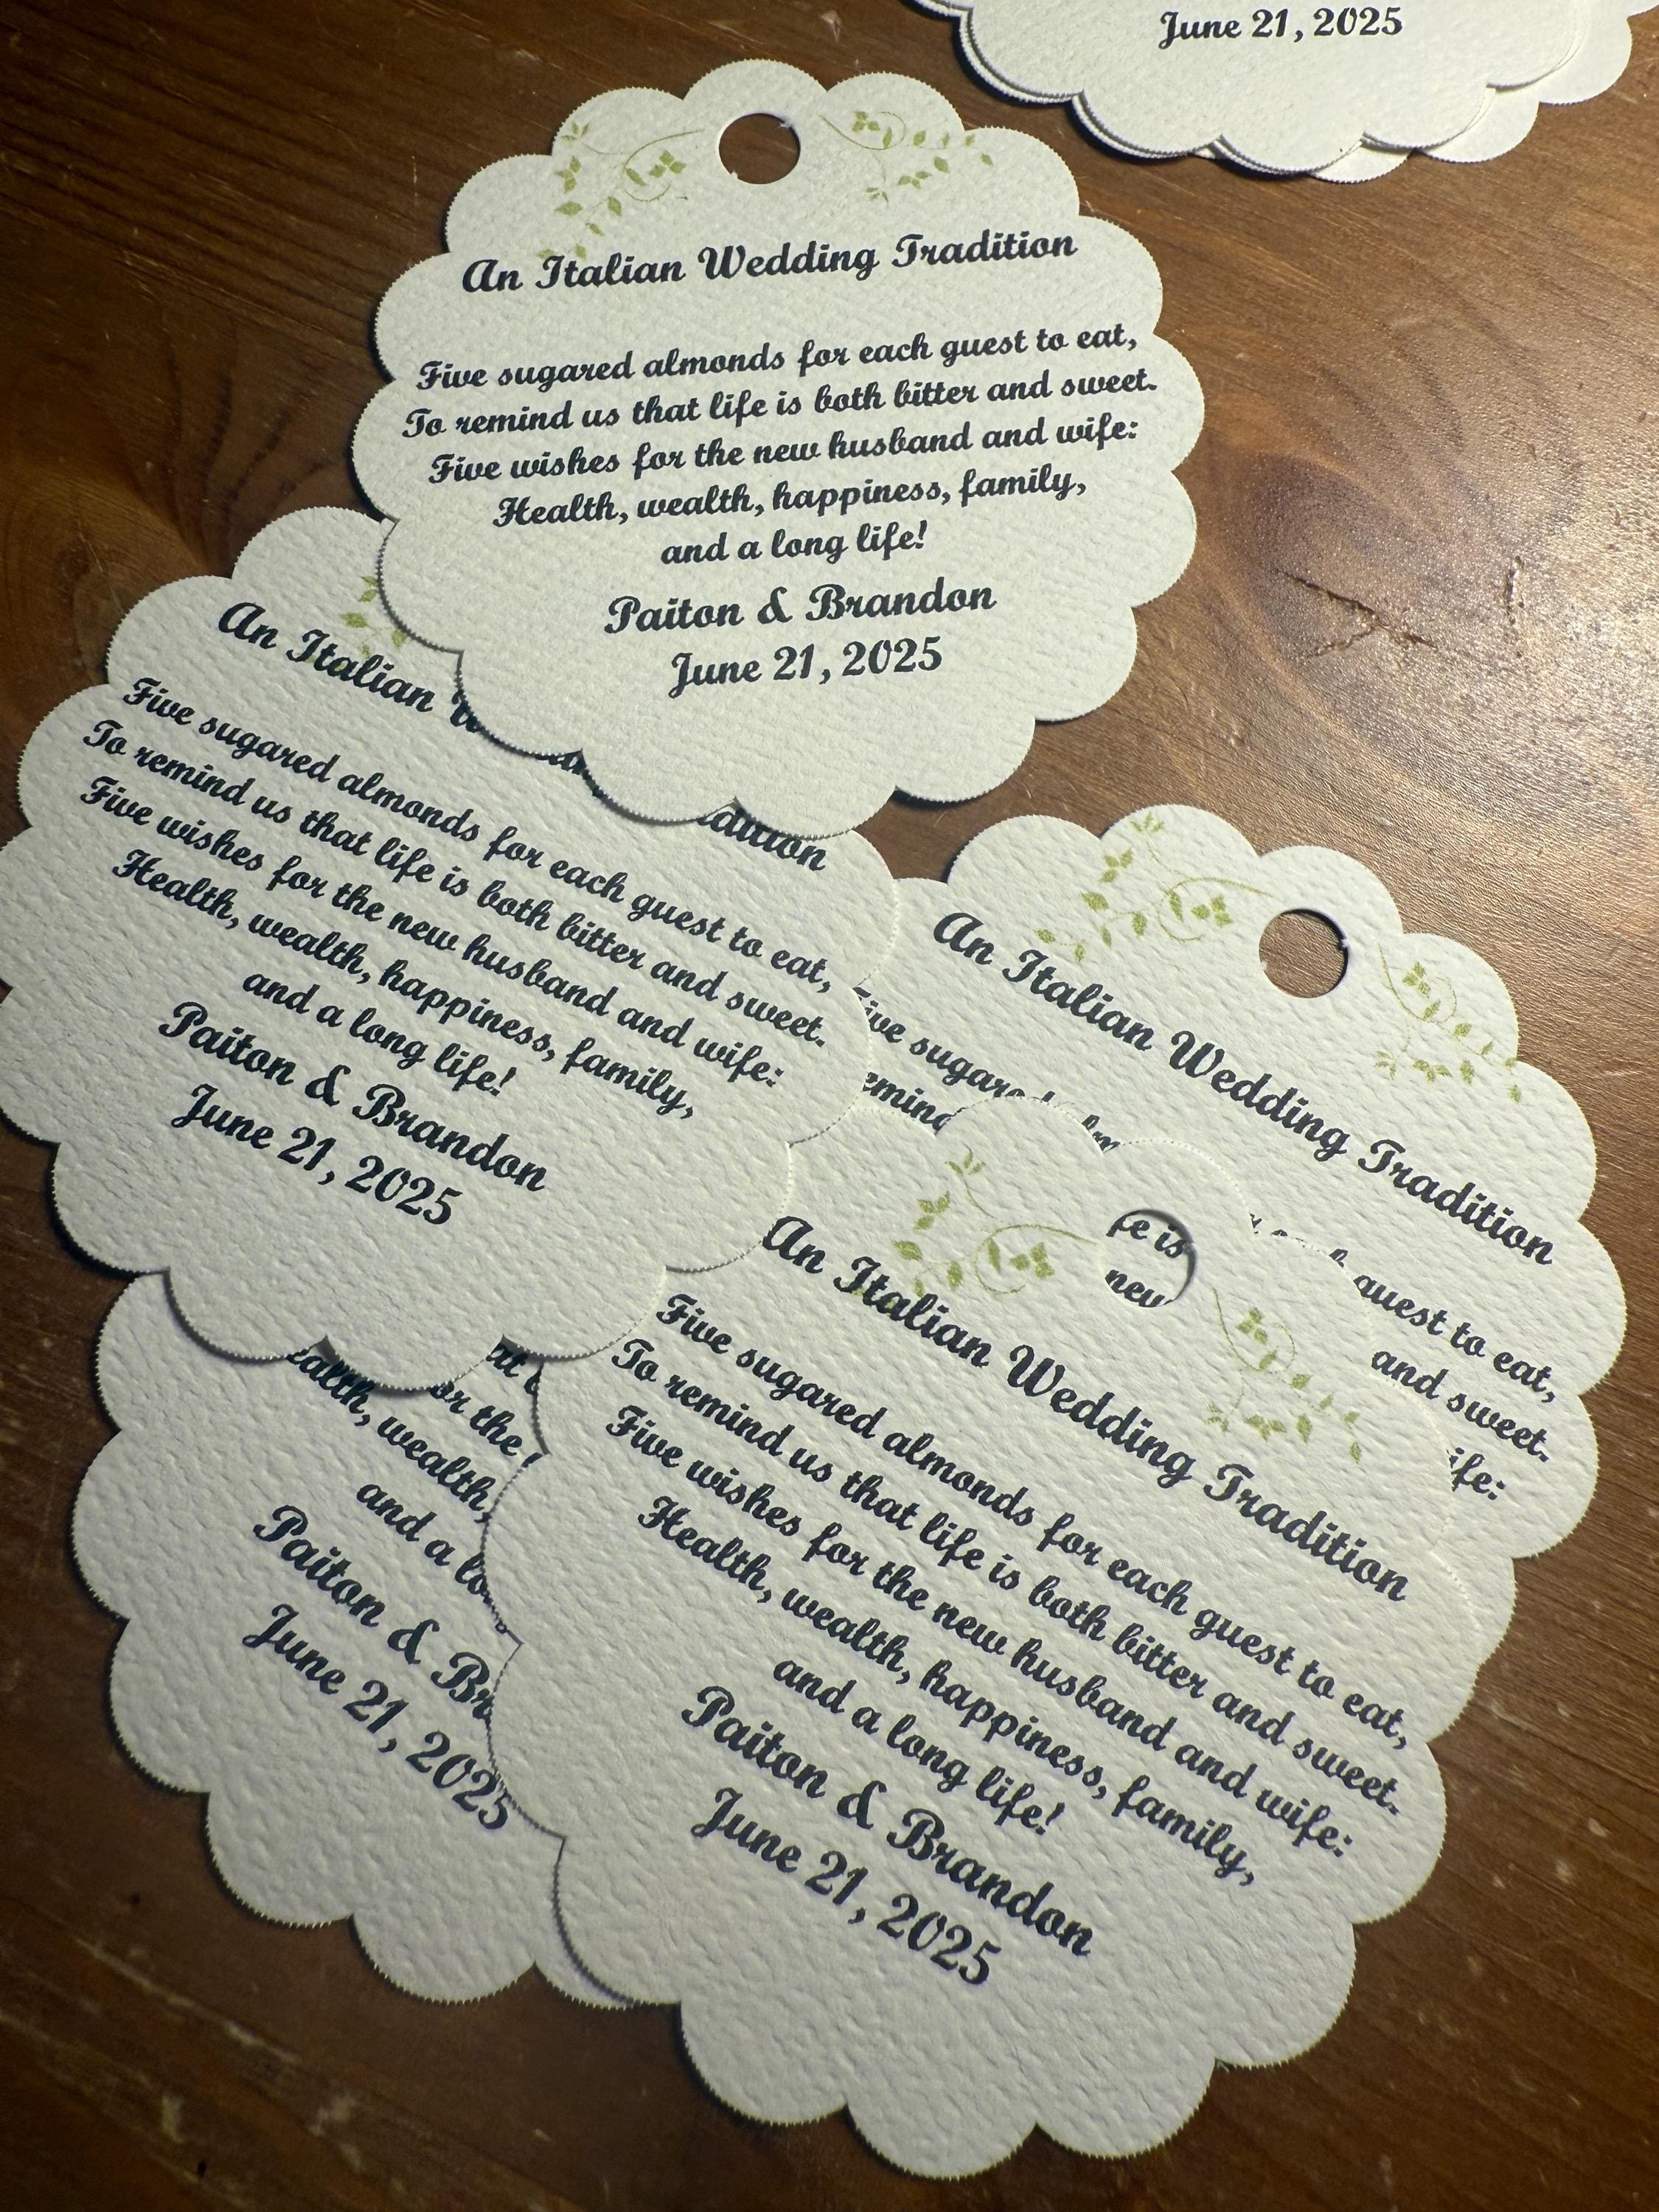 June 21, 2025
An Italian Wedding Tradition
Five sugared almonds for each guest to eat,
To remind us that life is both bitter and sweet.
Five wishes for the new husband and wife:
Health, wealth, happiness, family,
and a long life!
Paiton & Brandon
June 21, 2025
An Italian
Five sugared almonds for each guest to eat,
To remind us that life is both bitter and sweet.
Five wishes for the new husband and wife:
Health, wealth, happiness, family,
and a long life!
Paiton & Brandon
June 21, 2025
An Italian Wedding Tradition
guest to eat,
and sweet.
An Italian Wedding Tradition
Five sugared almonds for each guest to eat,
To remind us that life is both bitter and sweet.
Five wishes for the new husband and wife:
Health, wealth, happiness, family,
and a long life!
Paiton & Brandon
June 21, 2025
the
wealth,
and a
Paiton &
June 21, 2025